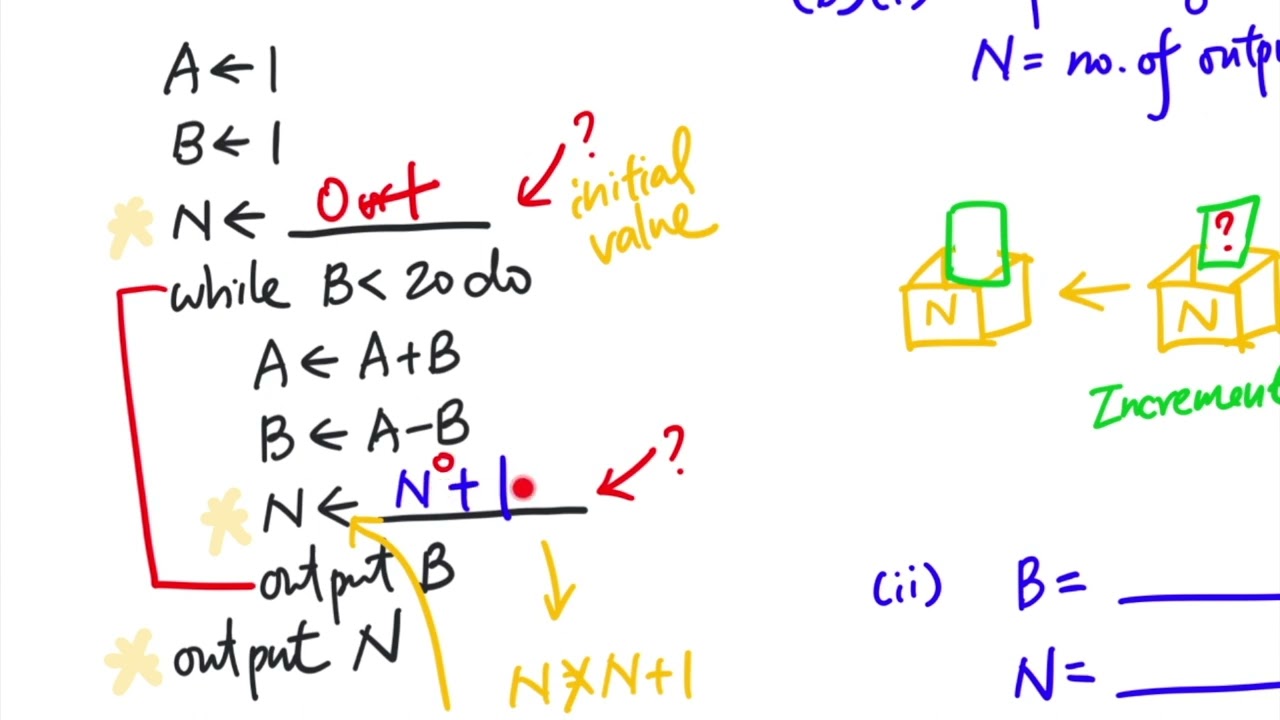 A ← 1
B ← 1
N ← 0 or 1
?
initial
value
while B < 20 do
A ← A+B
B ← A-B
N ← N + 1
0
?
output B
output N
N ≠ N+1
N = no. of outp
N
N
?
Increment
(ii) B =
N =